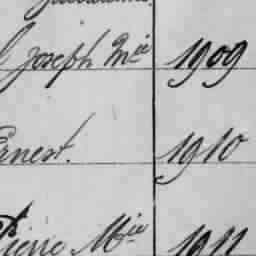 Joseph Mie 1909
Ernest. 1910
Pierre Mie 1911